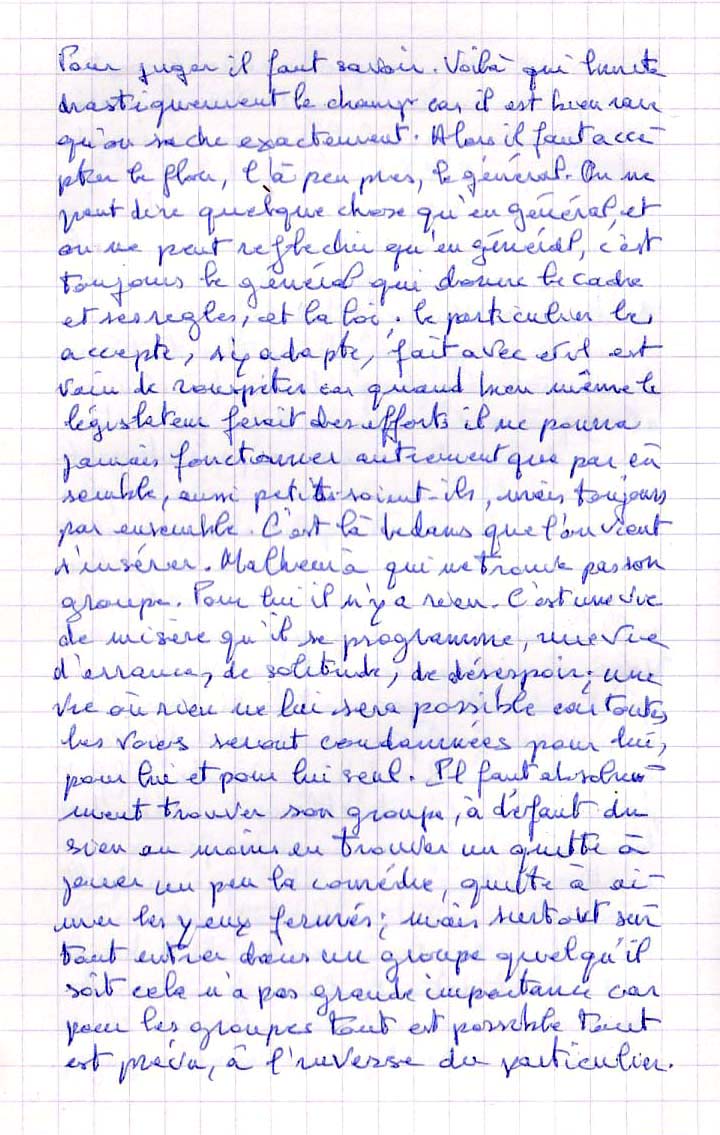 Pour juger il faut savoir. Voilà qui limite
drastiquement le champ car il est bien rare
qu'on sache exactement. Alors il faut acce-
pter le flou, l'à peu près, le général. On ne
peut dire quelque chose qu'en général, et
on ne peut réfléchir qu'en général, c'est
toujours le général qui donne le cadre
et ses regles, et la loi ; le particulier les
accepte, s'y adapte, fait avec et il est
vain de rouspéter car quand bien même le
législateur ferait des efforts il ne pourra
jamais fonctionner autrement que par en
semble, aussi petits soient-ils, mais toujours
par ensemble. C'est là dedans que l'on vient
s'insérer. Malheur à qui ne trouve pas son
groupe. Pour lui il n'y a rien. C'est une vie
de misère qu'il se programme, une vie
d'errance, de solitude, de désespoir ; une
vie où rien ne lui sera possible car toutes
les voies seront condamnées pour lui,
pour lui et pour lui seul. Il faut absolu-
ment trouver son groupe, à défaut du
sien au moins en trouver un quitte à
jouer un peu la comédie, quitte à ai-
mer les yeux fermés ; mais surtout sur
tout entrer dans un groupe quelqu'il
soit cela n'a pas grande importance car
pour les groupes tout est possible tout
est prévu, à l'inverse du particulier.